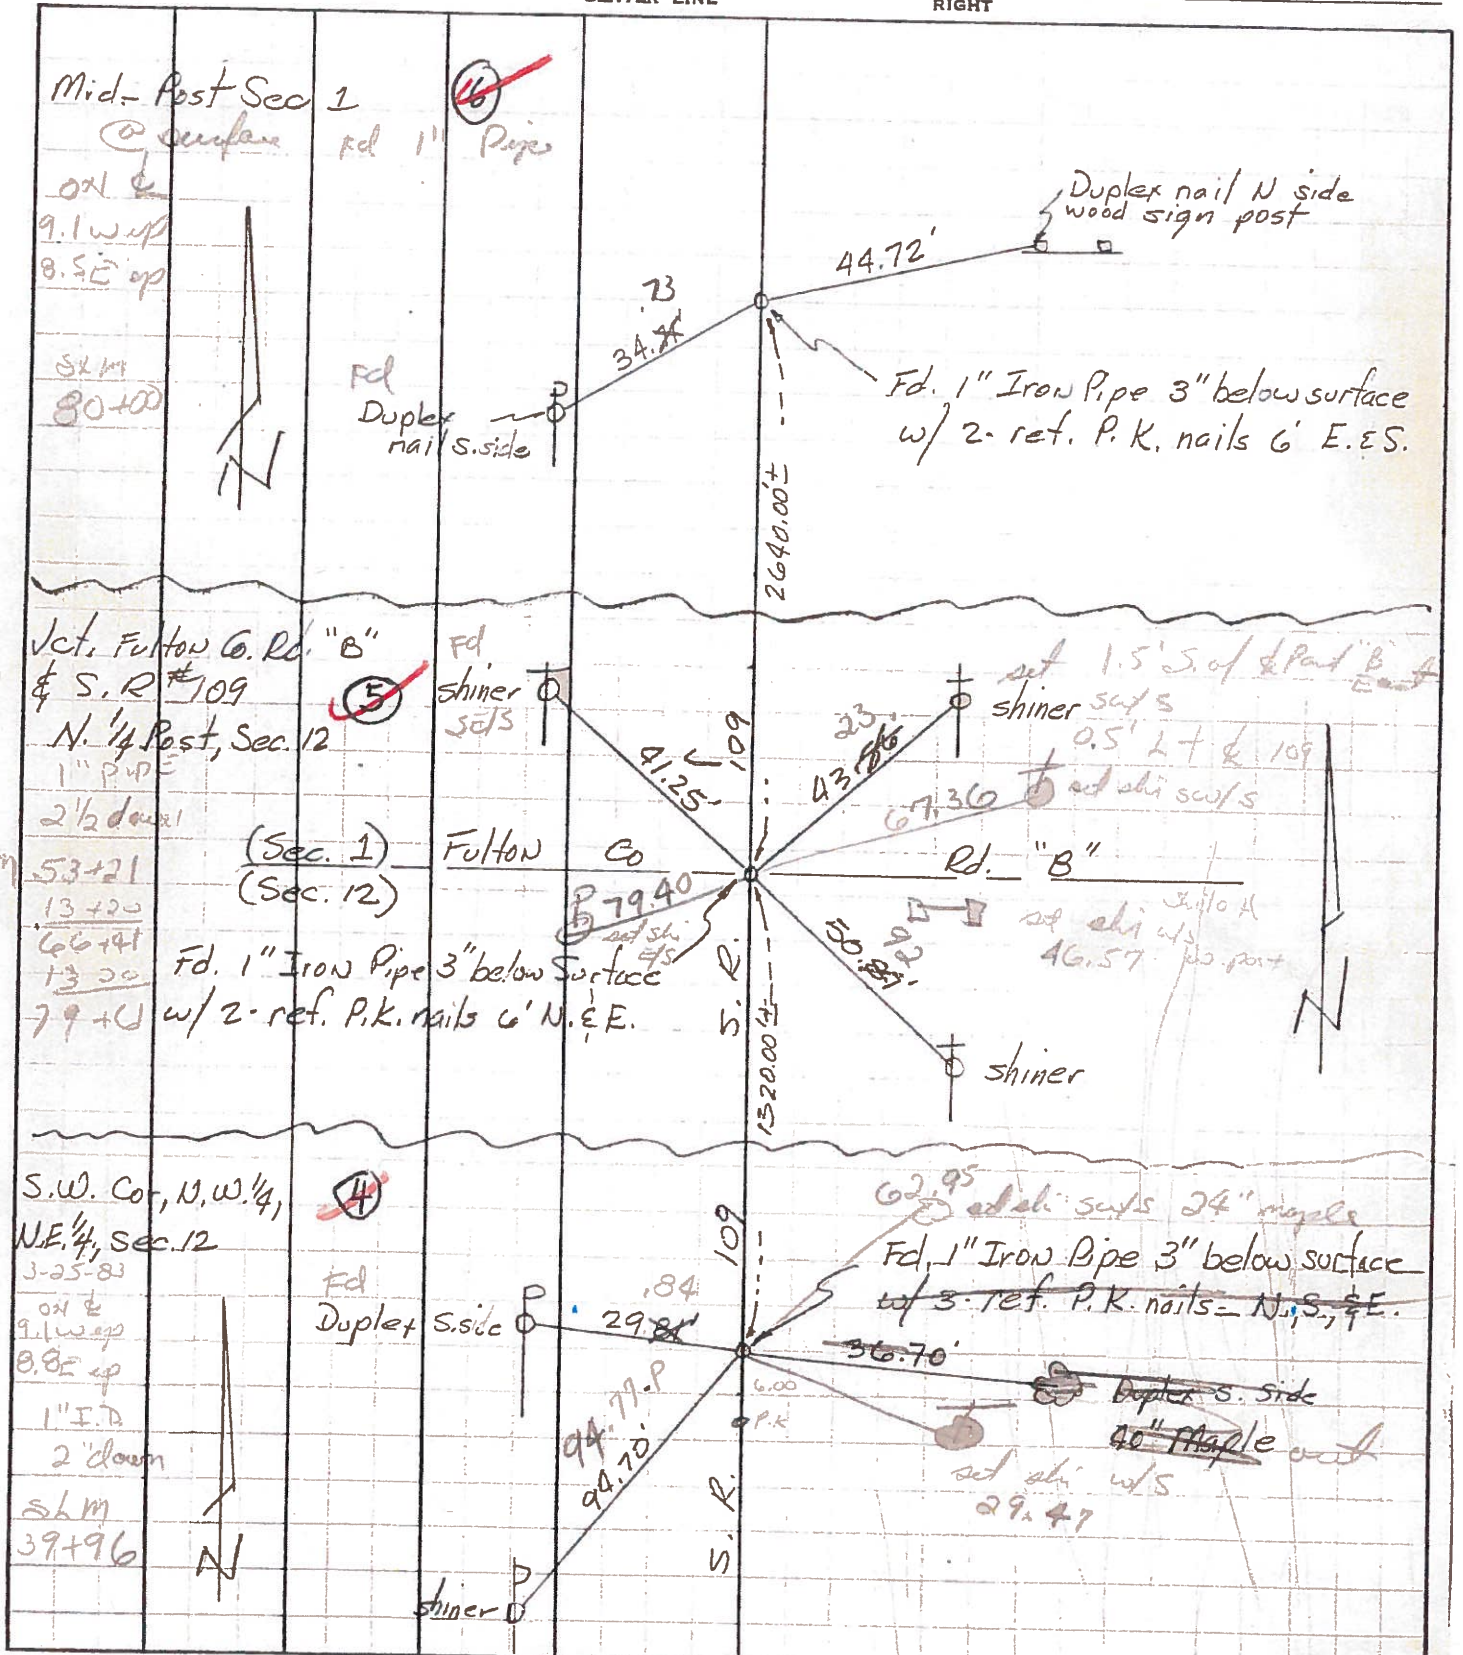 CENTER LINE
RIGHT
Mid- Post Sec 1
6
@ surface Fd 1" Pipe
on ℄
9.1 w ep
8.5 E ep
SLM
80+00
N
Duplex nail N side
wood sign post
44.72'
.73
34.
Fd
Duplex
nail S. side
Fd. 1" Iron Pipe 3" below surface
w/ 2- ref. P.K. nails 6' E. & S.
2640.00'±
Jct. Fulton Co. Rd. "B"
& S.R #109
5
N. 1/4 Post, Sec. 12
1" PIPE
2 1/2 down
53+21
13+20
66+41
13 20
79+61
Fd
shiner
SE/S
41.25'
109
23
43.
shiner
set 1.5' S. of ℄ Road "B" East
SW/S
0.5' Lt ℄ 109
67.36
set shi SW/S
(Sec. 1) Fulton Co Rd. "B"
(Sec. 12)
79.40
set shi
E/S
set shi w/s
46.57 w. post
92
50.87'
Fd. 1" Iron Pipe 3" below Surface
w/ 2- ref. P.K. nails 6' N. & E.
S. R.
1320.00'±
shiner
N
S.W. Cor, N.W. 1/4,
N.E. 1/4, Sec. 12
4
3-25-83
on ℄
9.1 w ep
8.8 E ep
1" I.D.
2" down
SLM
39+96
N
62.95
set shi SW/S 24" maple
109
Fd. 1" Iron Pipe 3" below surface
w/ 3- ref. P.K. nails- N., S., & E.
Fd
Duplex S. side
.84
29.81'
36.70'
Duplex S. side
40" Maple out
6.00
P.K
94.77-P
94.70'
set shi w/S
29.47
S. R.
shiner